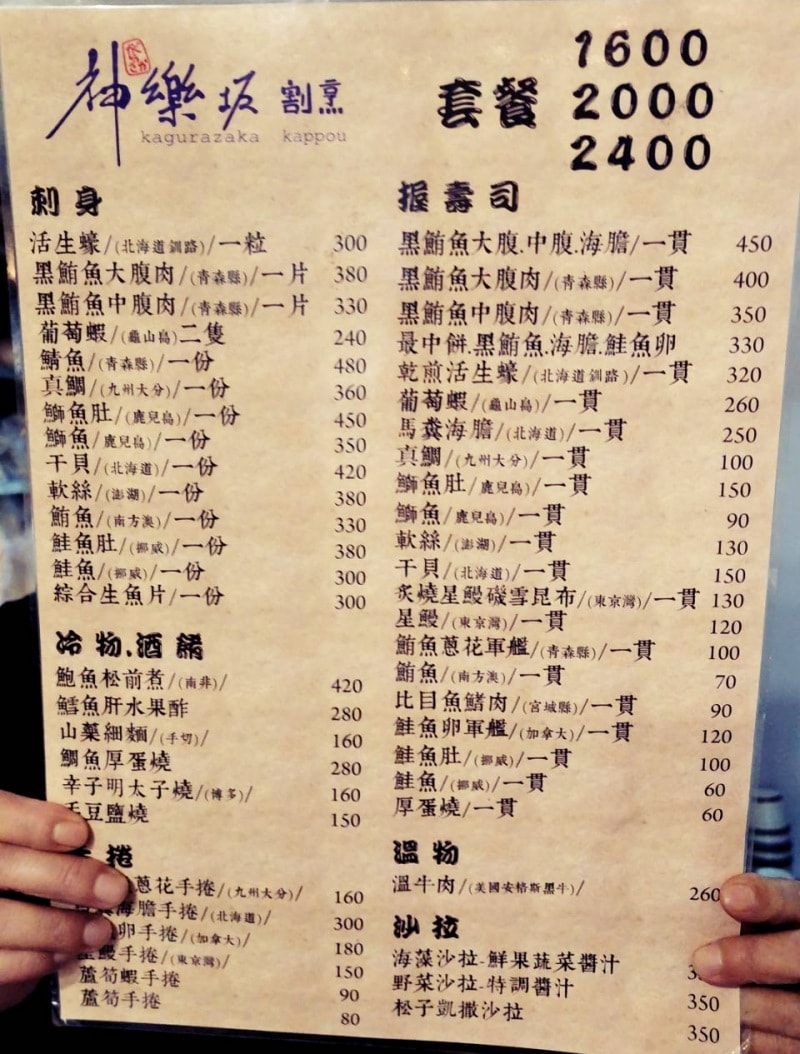 神樂坂 割烹
kagurazaka kappou
套餐
1600
2000
2400
刺身
活生蠔/(北海道釧路)/一粒 300
黑鮪魚大腹肉/(青森縣)/一片 380
黑鮪魚中腹肉/(青森縣)/一片 330
葡萄蝦/(龜山島)二隻 240
鯖魚/(青森縣)/一份 480
真鯛/(九州大分)/一份 360
鰤魚肚/(鹿兒島)/一份 450
鰤魚/鹿兒島)/一份 350
干貝/(北海道)/一份 420
軟絲/(澎湖)/一份 380
鮪魚/(南方澳)/一份 330
鮭魚肚/(挪威)/一份 380
鮭魚/(挪威)/一份 300
綜合生魚片/一份 300
冷物.酒餚
鮑魚松前煮/(南非)/ 420
鱈魚肝水果酢 280
山藥細麵/(手切)/ 160
鯛魚厚蛋燒 280
辛子明太子燒/(博多)/ 160
毛豆鹽燒 150
捲
蔥花手捲/(九州大分)/ 160
海膽手捲/(北海道)/ 300
卵手捲/(加拿大)/ 180
星鰻手捲/(東京灣)/ 150
蘆筍蝦手捲 90
蘆筍手捲 80
握壽司
黑鮪魚大腹.中腹.海膽/一貫 450
黑鮪魚大腹肉/(青森縣)/一貫 400
黑鮪魚中腹肉/(青森縣)/一貫 350
最中餅.黑鮪魚.海膽.鮭魚卵 330
乾煎活生蠔/(北海道釧路)/一貫 320
葡萄蝦/(龜山島)/一貫 260
馬糞海膽/(北海道)/一貫 250
真鯛/(九州大分)/一貫 100
鰤魚肚/鹿兒島)/一貫 150
鰤魚/鹿兒島)/一貫 90
軟絲/(澎湖)/一貫 130
干貝/(北海道)/一貫 150
炙燒星鰻磯雪昆布/(東京灣)/一貫 130
星鰻/(東京灣)/一貫 120
鮪魚蔥花軍艦/(青森縣)/一貫 100
鮪魚/(南方澳)/一貫 70
比目魚鰭肉/(宮城縣)/一貫 90
鮭魚卵軍艦/(加拿大)/一貫 120
鮭魚肚/(挪威)/一貫 100
鮭魚/(挪威)/一貫 60
厚蛋燒/一貫 60
溫物
溫牛肉/(美國安格斯黑牛)/ 260
沙拉
海藻沙拉-鮮果蔬菜醬汁
野菜沙拉-特調醬汁 350
松子凱撒沙拉 350